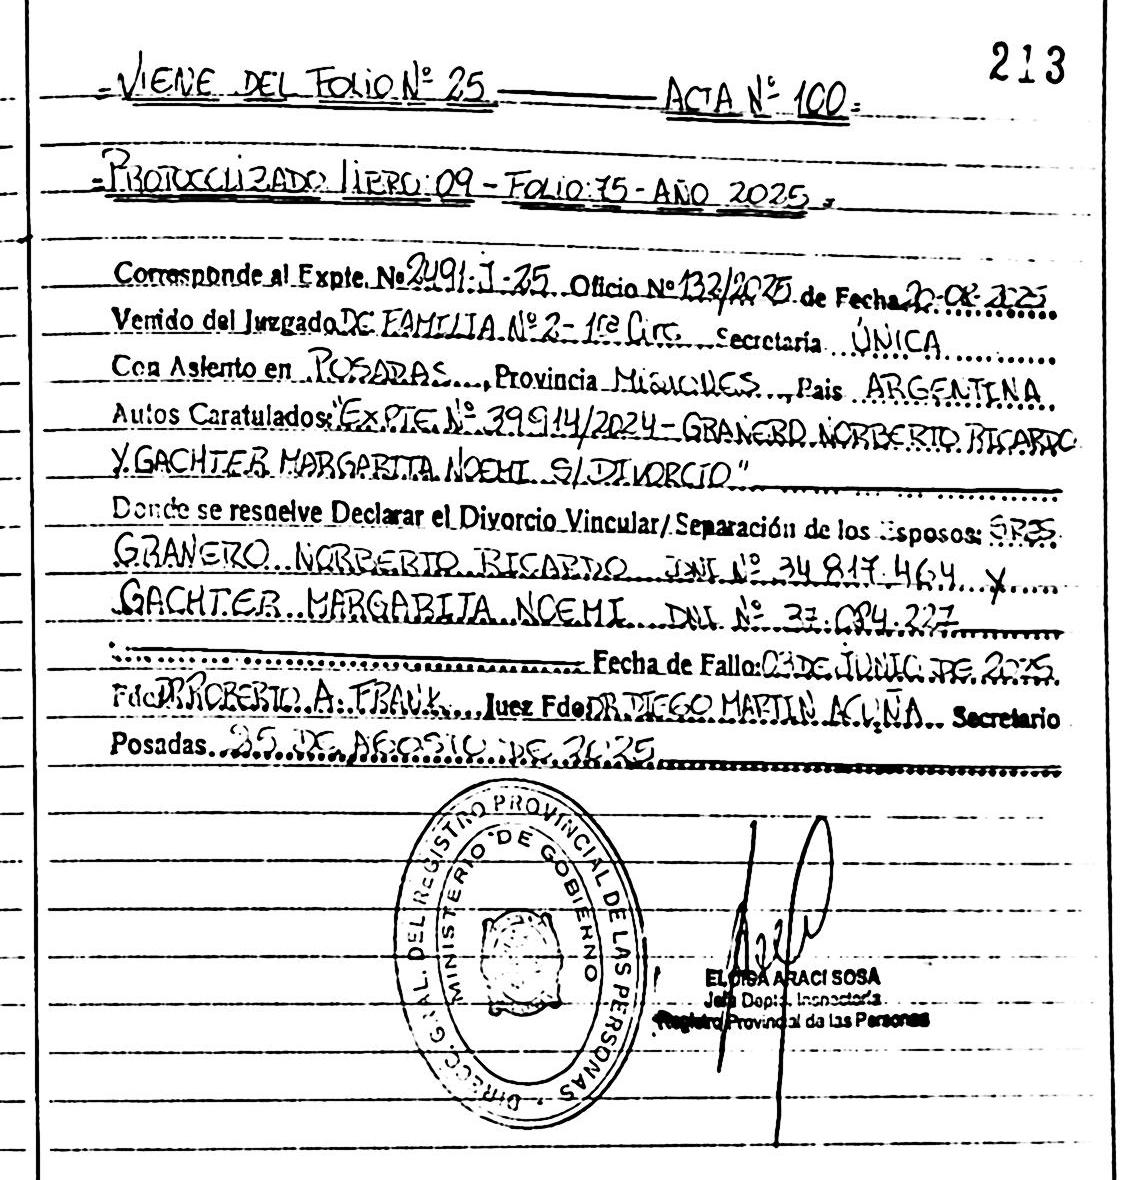 213
=VIENE DEL FOLIO Nº 25 ACTA Nº 100=
=PROTOCOLIZADO LIBRO: 09 - FOLIO: 75 - AÑO 2025=
Corresponde al Expte. Nº 2491-J-25 Oficio Nº 132/2025 de Fecha 20-08-2025
Venido del Juzgado DE FAMILIA Nº 2 - 1ra Circ. Secretaría ÚNICA
Con Asiento en POSADAS, Provincia MISIONES, País ARGENTINA
Autos Caratulados: "EXPTE. Nº 39914/2024 - GRANERO NORBERTO RICARDO
Y GACHTER MARGARITA NOEMI S/DIVORCIO"
Donde se resuelve Declarar el Divorcio Vincular/Separación de los Esposos: SRES
GRANERO NORBERTO RICARDO DNI Nº 34.817.464 Y
GACHTER MARGARITA NOEMI DNI Nº 37.084.227
Fecha de Fallo: 03 DE JUNIO DE 2025
Fdo DR. ROBERTO A. FRANK Juez Fdo DR. DIEGO MARTIN ACUÑA Secretario
Posadas 25 DE AGOSTO DE 2025
DIRECC. GRAL. DEL REGISTRO PROVINCIAL DE LAS PERSONAS
MINISTERIO DE GOBIERNO
ELOISA ARACI SOSA
Jefa Dpto. Inspectoría
Registro Provincial de las Personas